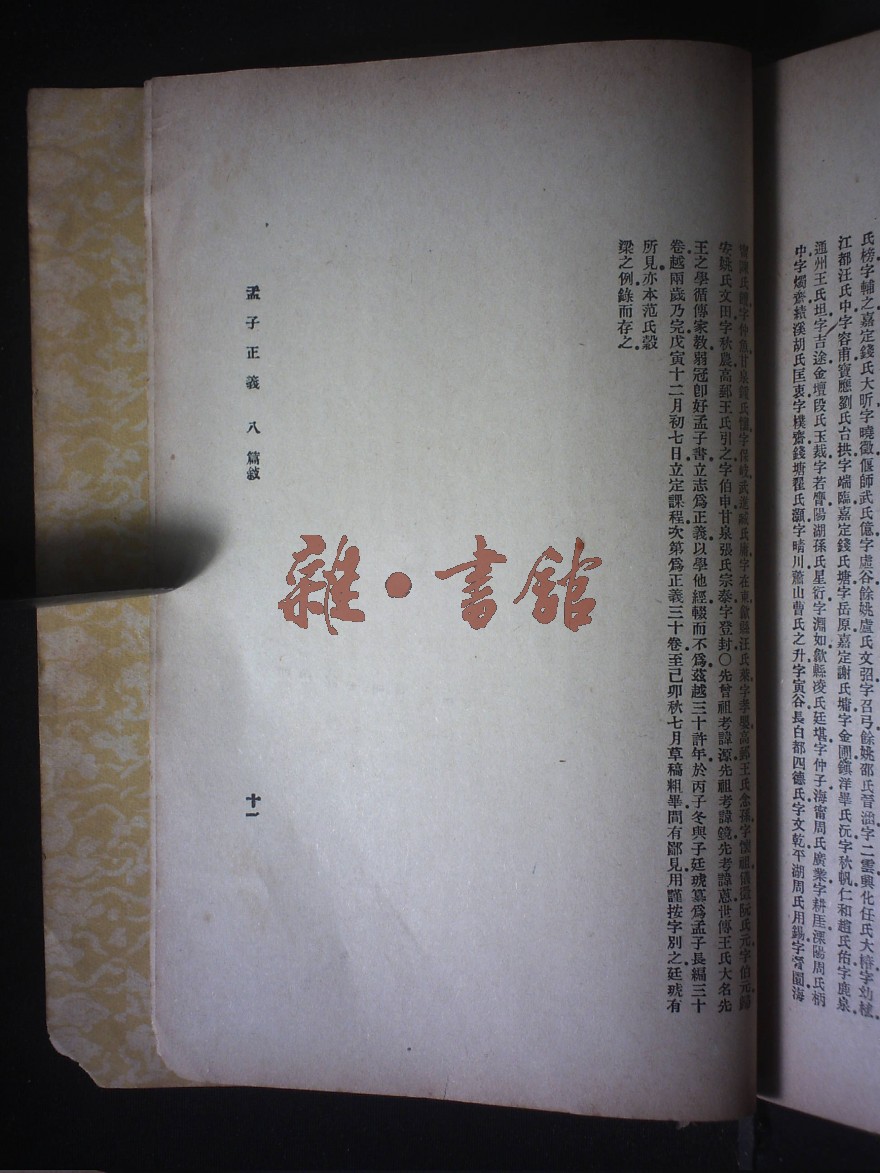 氏榜字輔之嘉定錢氏大昕字曉徵偃師武氏億字虛谷餘姚盧氏文弨字召弓餘姚邵氏晉涵字二雲興化任氏大椿字幼植
江都汪氏中字容甫寶應劉氏台拱字端臨嘉定錢氏塘字岳原嘉定謝氏墉字金圃鎮洋畢氏沅字秋帆仁和趙氏佑字鹿泉
通州王氏坦字吉途金壇段氏玉裁字若膺陽湖孫氏星衍字淵如歙縣凌氏廷堪字仲子海甯周氏廣業字耕厓溧陽周氏柄
中字燭齋績溪胡氏匡衷字樸齋錢塘翟氏灝字晴川蕭山曹氏之升字寅谷長白都四德氏字文乾平湖周氏用錫字晉園海
甯陳氏鱣字仲魚甘泉鍾氏懷字保岐武進臧氏庸字在東歙縣汪氏萊字孝嬰高郵王氏念孫字懷祖儀徵阮氏元字伯元歸
安姚氏文田字秋農高郵王氏引之字伯申甘泉張氏宗泰字登封〇先曾祖考諱源先祖考諱鏡先考諱蔥世傳王氏大名先
王之學循傳家教弱冠卽好孟子書立志爲正義以學他經輟而不爲茲越三十許年於丙子冬與子廷琥纂爲孟子長編三十
卷越兩歲乃完戊寅十二月初七日立定課程次第爲正義三十卷至己卯秋七月草稿粗畢間有鄙見用謹按字別之廷琥有
所見亦本范氏穀
梁之例錄而存之
孟子正義 八 篇敍
十一
雜·書館